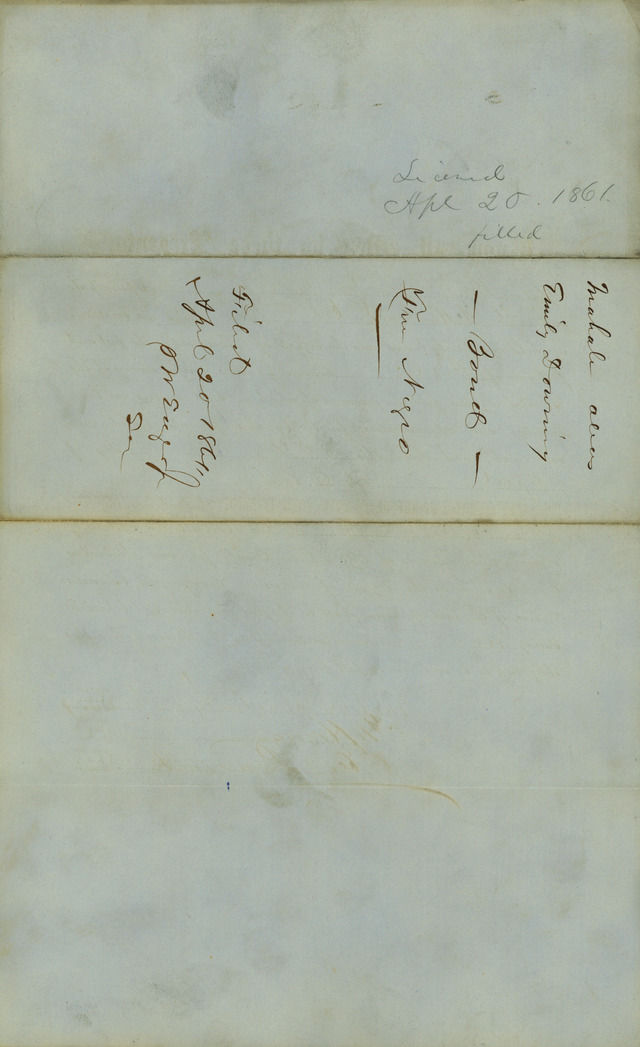 Licensed
Apl 20. 1861.
filled
Mahala alias
Emily Downing
— Bond —
Free Negro
Filed
April 20 1861.